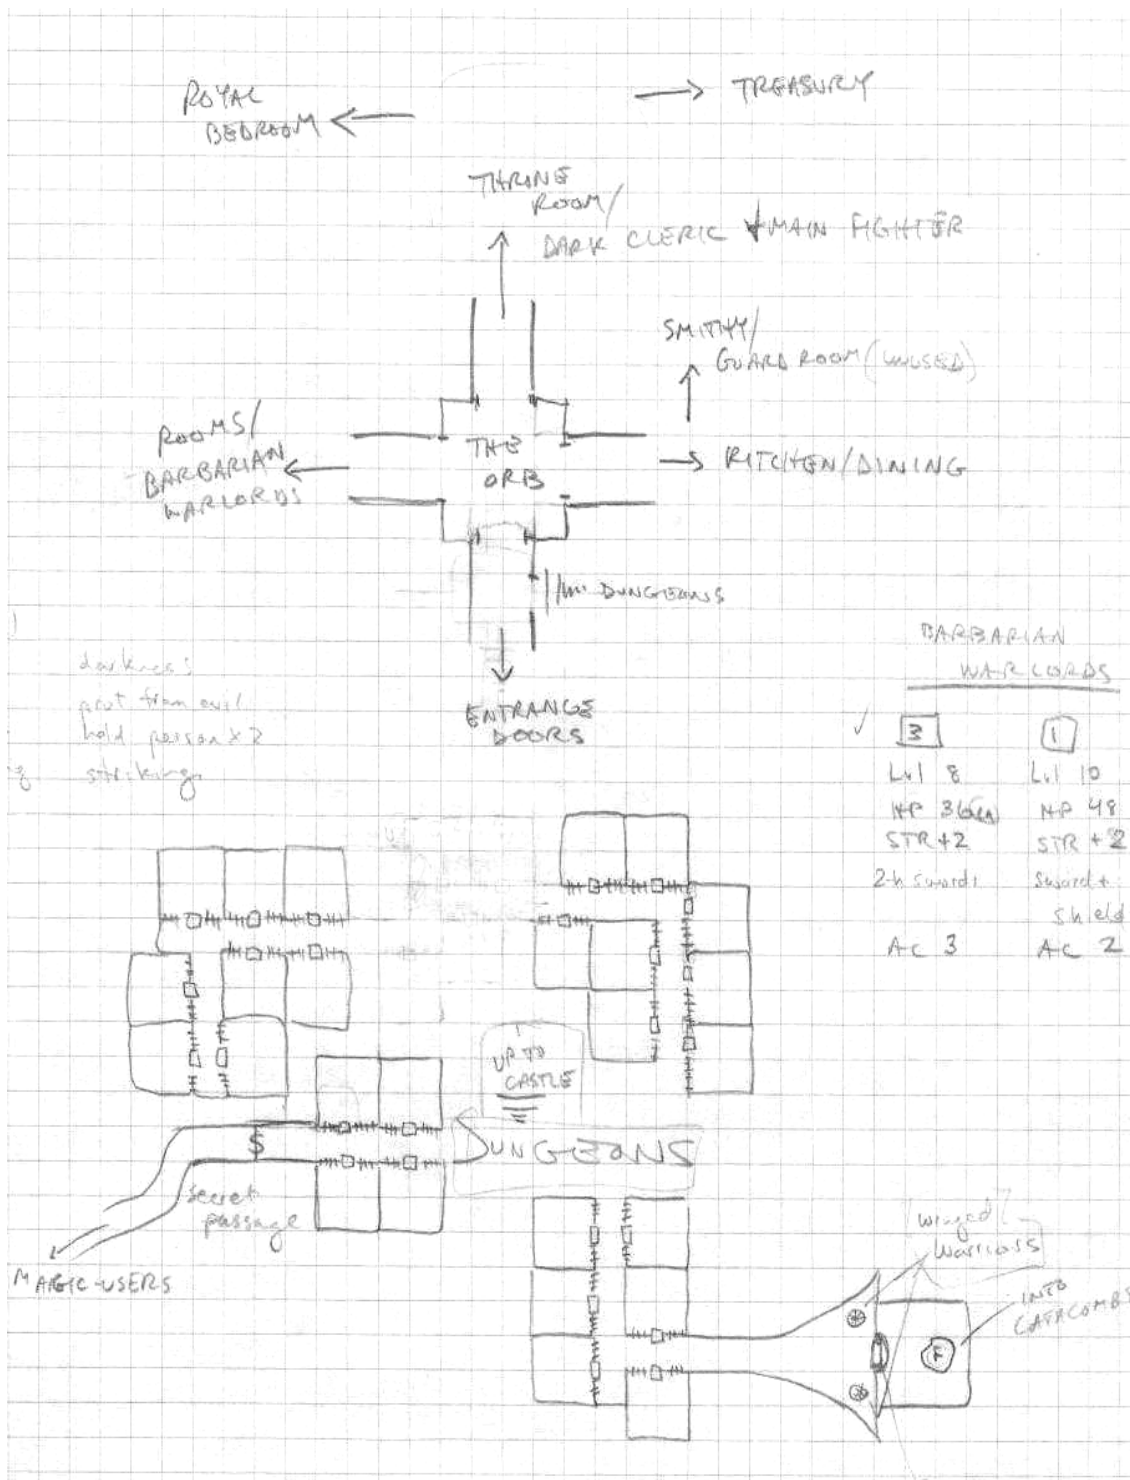 ROYAL
BEDROOM
TREASURY
THRONE
ROOM/
DARK CLERIC + MAIN FIGHTER
SMITHY/
GUARD ROOM (UNUSED)
ROOMS/
BARBARIAN
WARLORDS
THE
ORB
KITCHEN/DINING
DUNGEONS
ENTRANCE
DOORS
darkness
prot from evil
hold person x 2
striking
BARBARIAN
WARLORDS
3
1
Lvl 8
Lvl 10
HP 36
HP 48
STR +2
STR +2
2-h swords
Sword +
shield
AC 3
AC 2
UP TO
CASTLE
DUNGEONS
S
secret
passage
MAGIC-USERS
winged
warriors
INTO
CATACOMBS
F